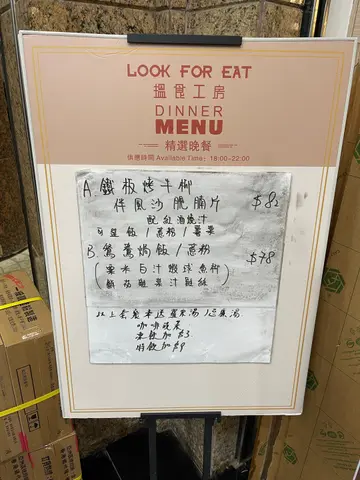 LOOK FOR EAT
搵食工房
DINNER
MENU
精選晚餐
供應時間 Available Time: 18:00-22:00
A. 鐵板燒牛柳
伴風沙脆腩片 $82
配紅酒燒汁
可跟飯/意粉/薯菜
B. 鴛鴦焗飯/意粉 $78
(粟米白汁蝦球魚柳)
(鮮茄蘋果汁雞絲)
以上套餐奉送羅宋湯/忌廉湯
咖啡或茶
凍飲加$3
特飲加$9